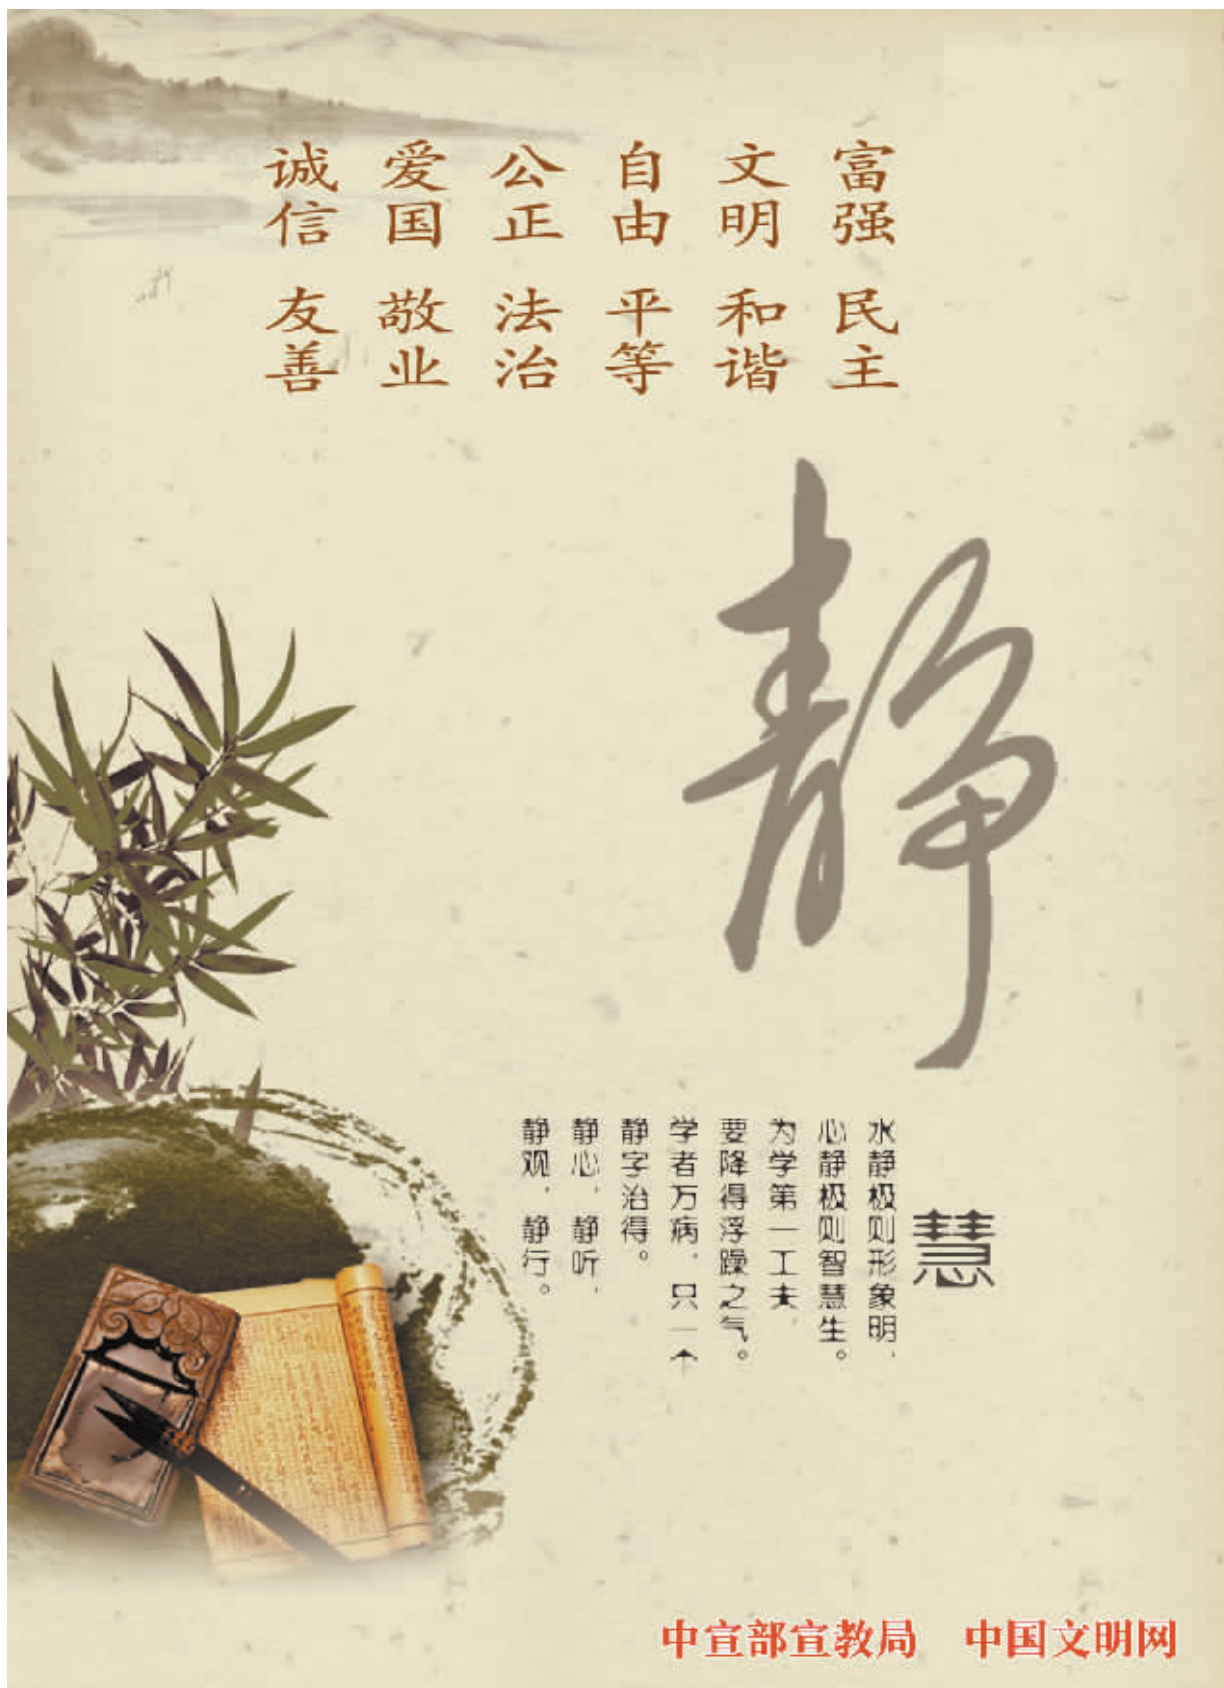 富强 民主
文明 和谐
自由 平等
公正 法治
爱国 敬业
诚信 友善
静
慧
水静极则形象明，
心静极则智慧生。
为学第一工夫，
要降得浮躁之气。
学者万病，只一个
静字治得。
静心，静听，
静观，静行。
中宣部宣教局 中国文明网